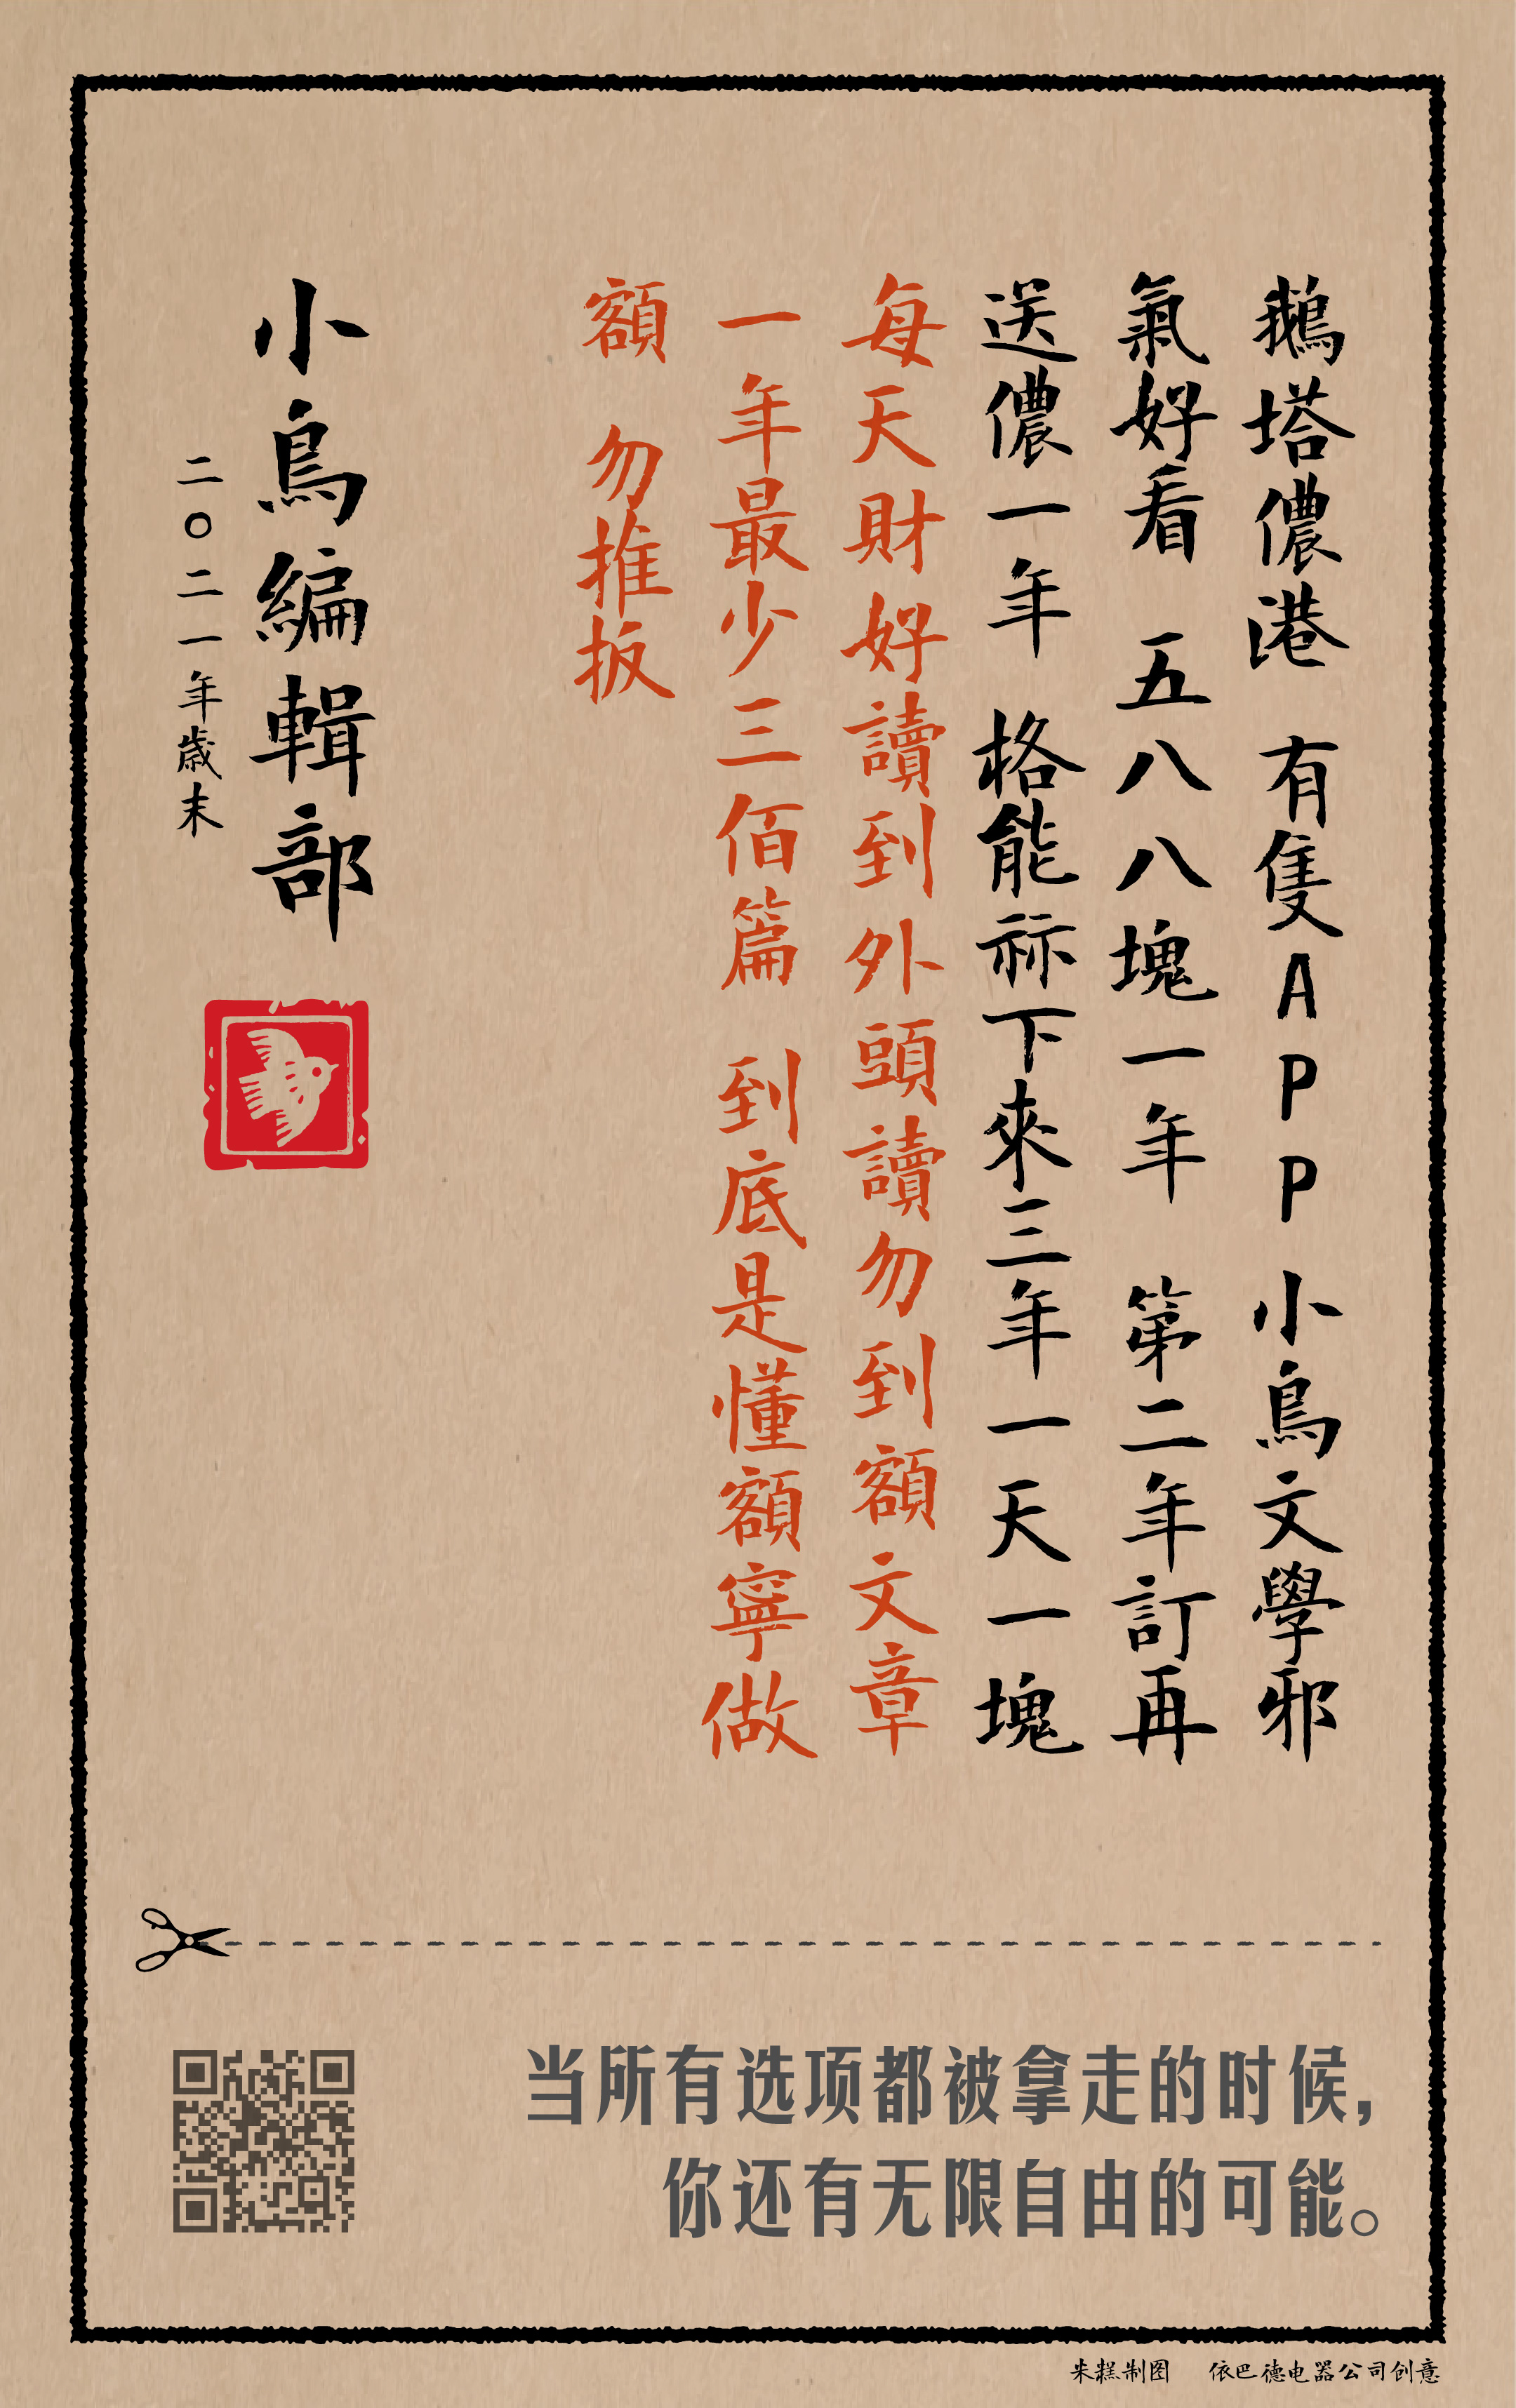 鵝塔儂港 有隻APP小鳥文學邪
氣好看 五八八塊一年 第二年訂再
送儂一年 格能祘下來三年一天一塊
每天財好讀到外頭讀勿到額文章
一年最少三佰篇 到底是懂額寧做
額 勿推扳
小鳥編輯部
二〇二一年歲末
当所有选项都被拿走的时候，
你还有无限自由的可能。
朱糕制图 依巴德电器公司创意